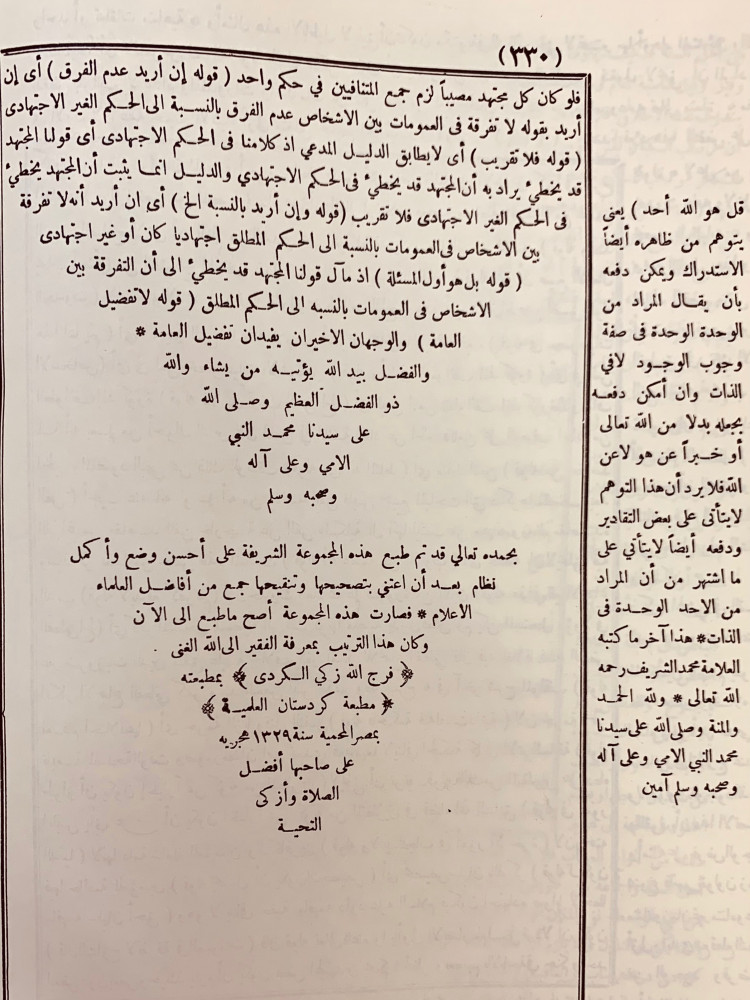 (٣٣٠)
فلو كان كل مجتهد مصيباً لزم جمع المتنافيين في حكم واحد ( قوله إن أريد عدم الفرق ) أى إن
أريد بقوله لا تفرقة فى العمومات بين الاشخاص عدم الفرق بالنسبة الى الحكم الغير الاجتهادى
( قوله فلا تقريب ) أى لايطابق الدليل المدعي اذ كلامنا فى الحكم الاجتهادى أى قولنا المجتهد
قد يخطئ يراد به أن المجتهد قد يخطئ فى الحكم الاجتهادي والدليل انما يثبت أن المجتهد يخطئ
فى الحكم الغير الاجتهادى فلا تقريب (قوله وإن أريد بالنسبة الخ ) أى ان أريد أنه لا تفرقة
بين الاشخاص فى العمومات بالنسبة الى الحكم المطلق اجتهاديا كان أو غير اجتهادى
( قوله بل هو أول المسئلة ) اذ مآل قولنا المجتهد قد يخطئ الى أن التفرقة بين
الاشخاص فى العمومات بالنسبه الى الحكم المطلق ( قوله لاتفضيل
العامة ) والوجهان الاخيران يفيدان تفضيل العامة *
والفضل بيد الله يؤتيه من يشاء والله
ذو الفضل العظيم وصلى الله
على سيدنا محمد النبي
الامي وعلى آله
وصحبه وسلم
بحمده تعالي قد تم طبع هذه المجموعة الشريفة على أحسن وضع وأكمل
نظام بعد أن اعتني بتصحيحها وتنقيحها جمع من أفاضل العلماء
الأعلام * فصارت هذه المجموعة أصح ماطبع الى الآن
وكان هذا الترتيب بمعرفة الفقير الى الله الغنى
﴿ فرج الله زكي الكردى ﴾ بمطبعته
﴿ مطبعة كردستان العلمية ﴾
بمصر المحمية سنة ١٣٢٩ هجريه
على صاحبها أفضل
الصلاة وأزكى
التحية
قل هو الله أحد ) يعنى
يتوهم من ظاهره أيضاً
الاستدراك ويمكن دفعه
بأن يقال المراد من
الوحدة الوحدة فى صفة
وجوب الوجود لافي
الذات وان أمكن دفعه
بجعله بدلا من الله تعالى
أو خبراً عن هو لاعن
الله فلا يرد أن هذا التوهم
لايتأتى على بعض التقادير
ودفعه أيضاً لايتأتي على
ما اشتهر من أن المراد
من الاحد الوحدة فى
الذات* هذا آخر ما كتبه
العلامة محمد الشريف رحمه
الله تعالى * ولله الحمد
والمنة وصلى الله على سيدنا
محمد النبي الامي وعلى آله
وصحبه وسلم آمين